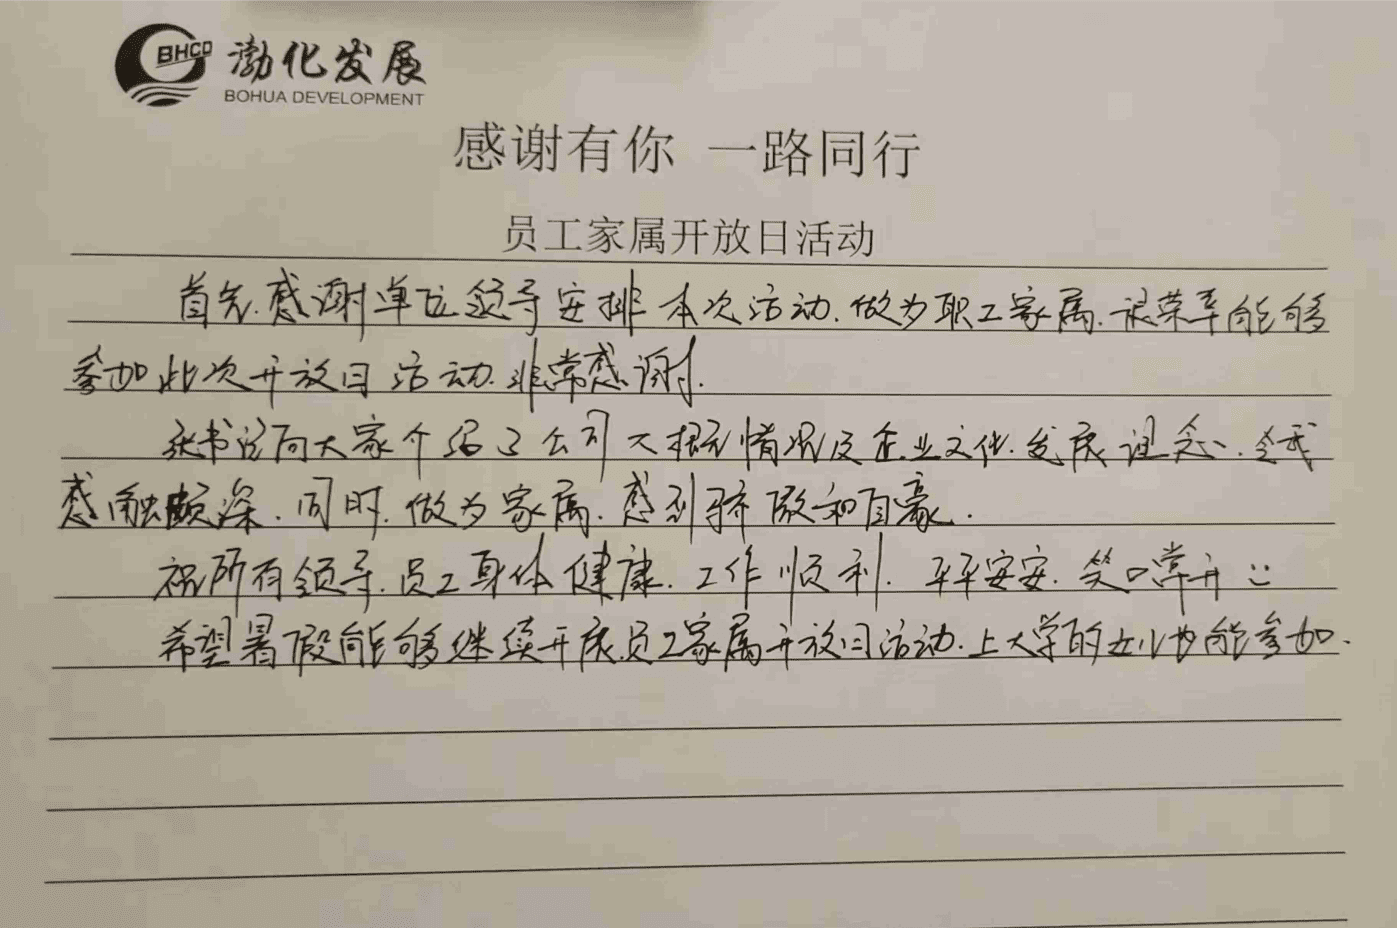 BHCD 渤化发展
BOHUA DEVELOPMENT
感谢有你 一路同行
员工家属开放日活动
首先.感谢单位领导安排本次活动.做为职工家属.很荣幸能够
参加此次开放日活动.非常感谢.
书记向大家介绍了公司大概情况及企业文化.发展理念.令我
感触颇深.同时.做为家属.感到骄傲和自豪.
祝所有领导.员工身体健康.工作顺利.平平安安.笑口常开
希望暑假能够继续开展员工家属开放日活动.上大学的女儿也能参加.